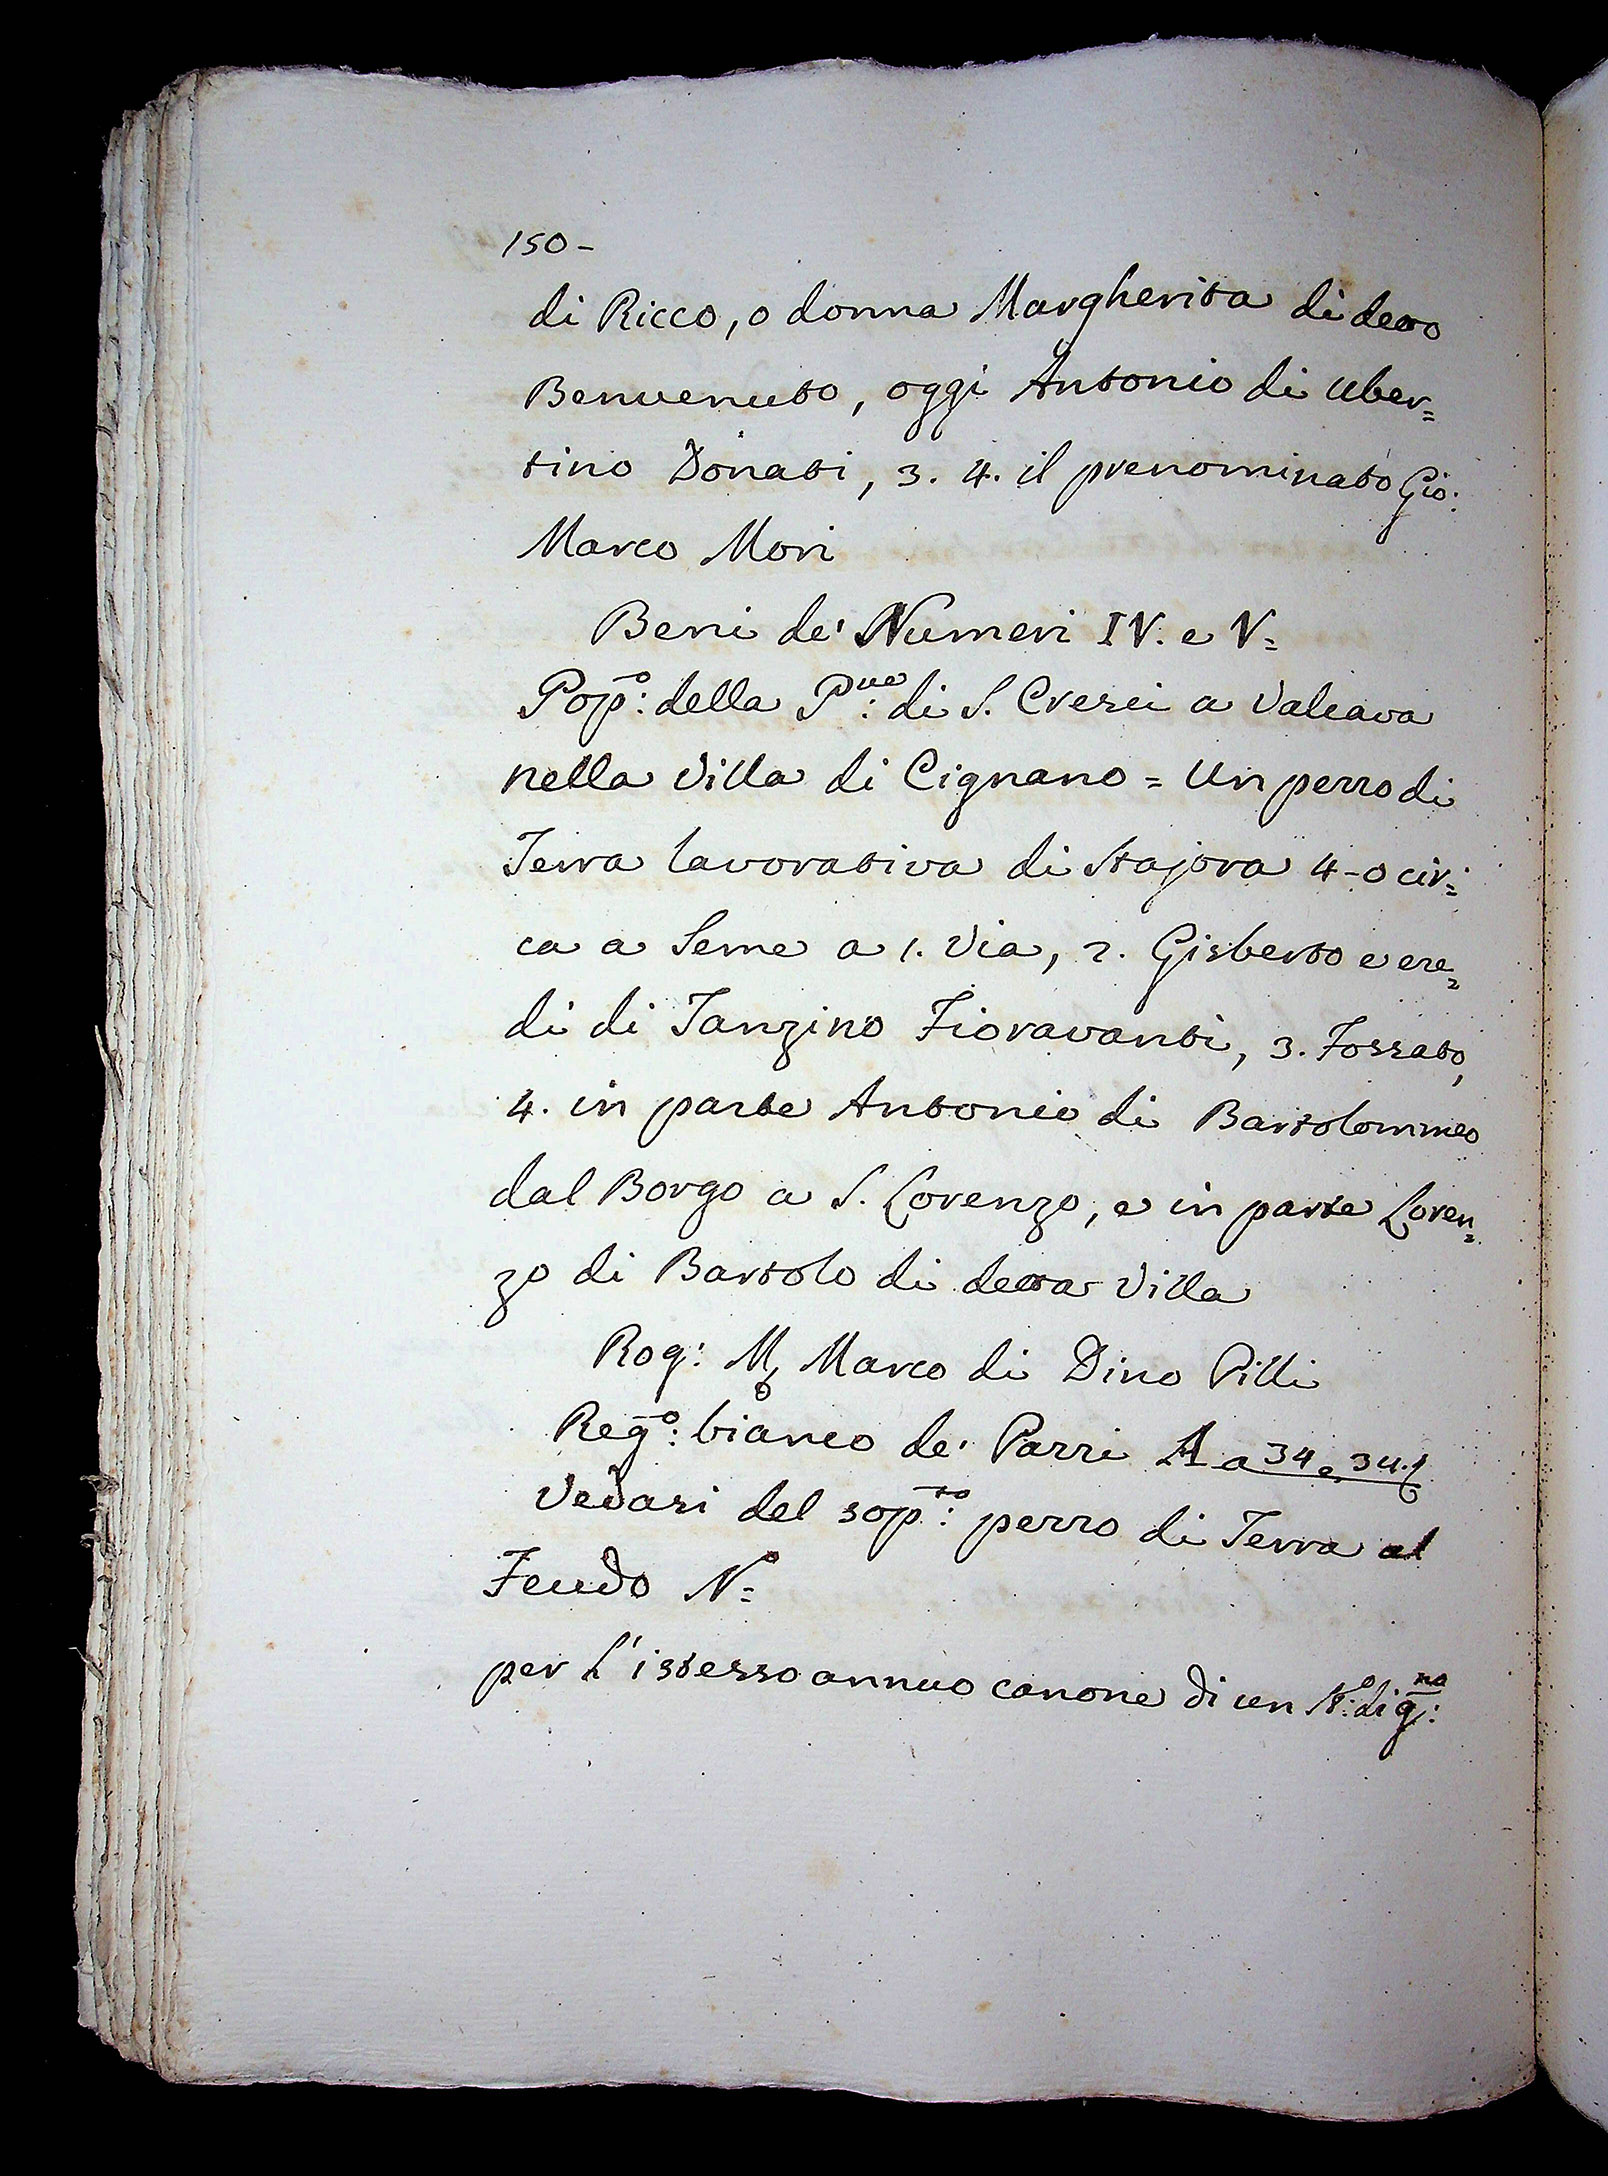 150-
di Ricco, o donna Margherita di detto
Benvenuto, oggi Antonio di Uber=
tino Donati, 3. 4. il prenominato Gio:
Marco Mori
Beni de' Numeri IV. e V=
Pop:º della P:ve di S. Cresci a Valcava
nella Villa di Cignano = Un pezzo di
Terra lavorativa di Stajora 4-0 cir=
ca a Seme a 1. Via, 2. Gisberto e ere=
di di Tanzino Fioravanti, 3. Fossato,
4. in parte Antonio di Bartolommeo
dal Borgo a S. Lorenzo, e in parte Loren=
zo di Bartolo di detta Villa
Rog: Mº Marco di Dino Pilli
Reg:º bianco de' Pazzi A a 34 e
Vedasi del sop:to pezzo di Terra al
Feudo Nº=
per l'istesso annuo canone di un St:º di g:no